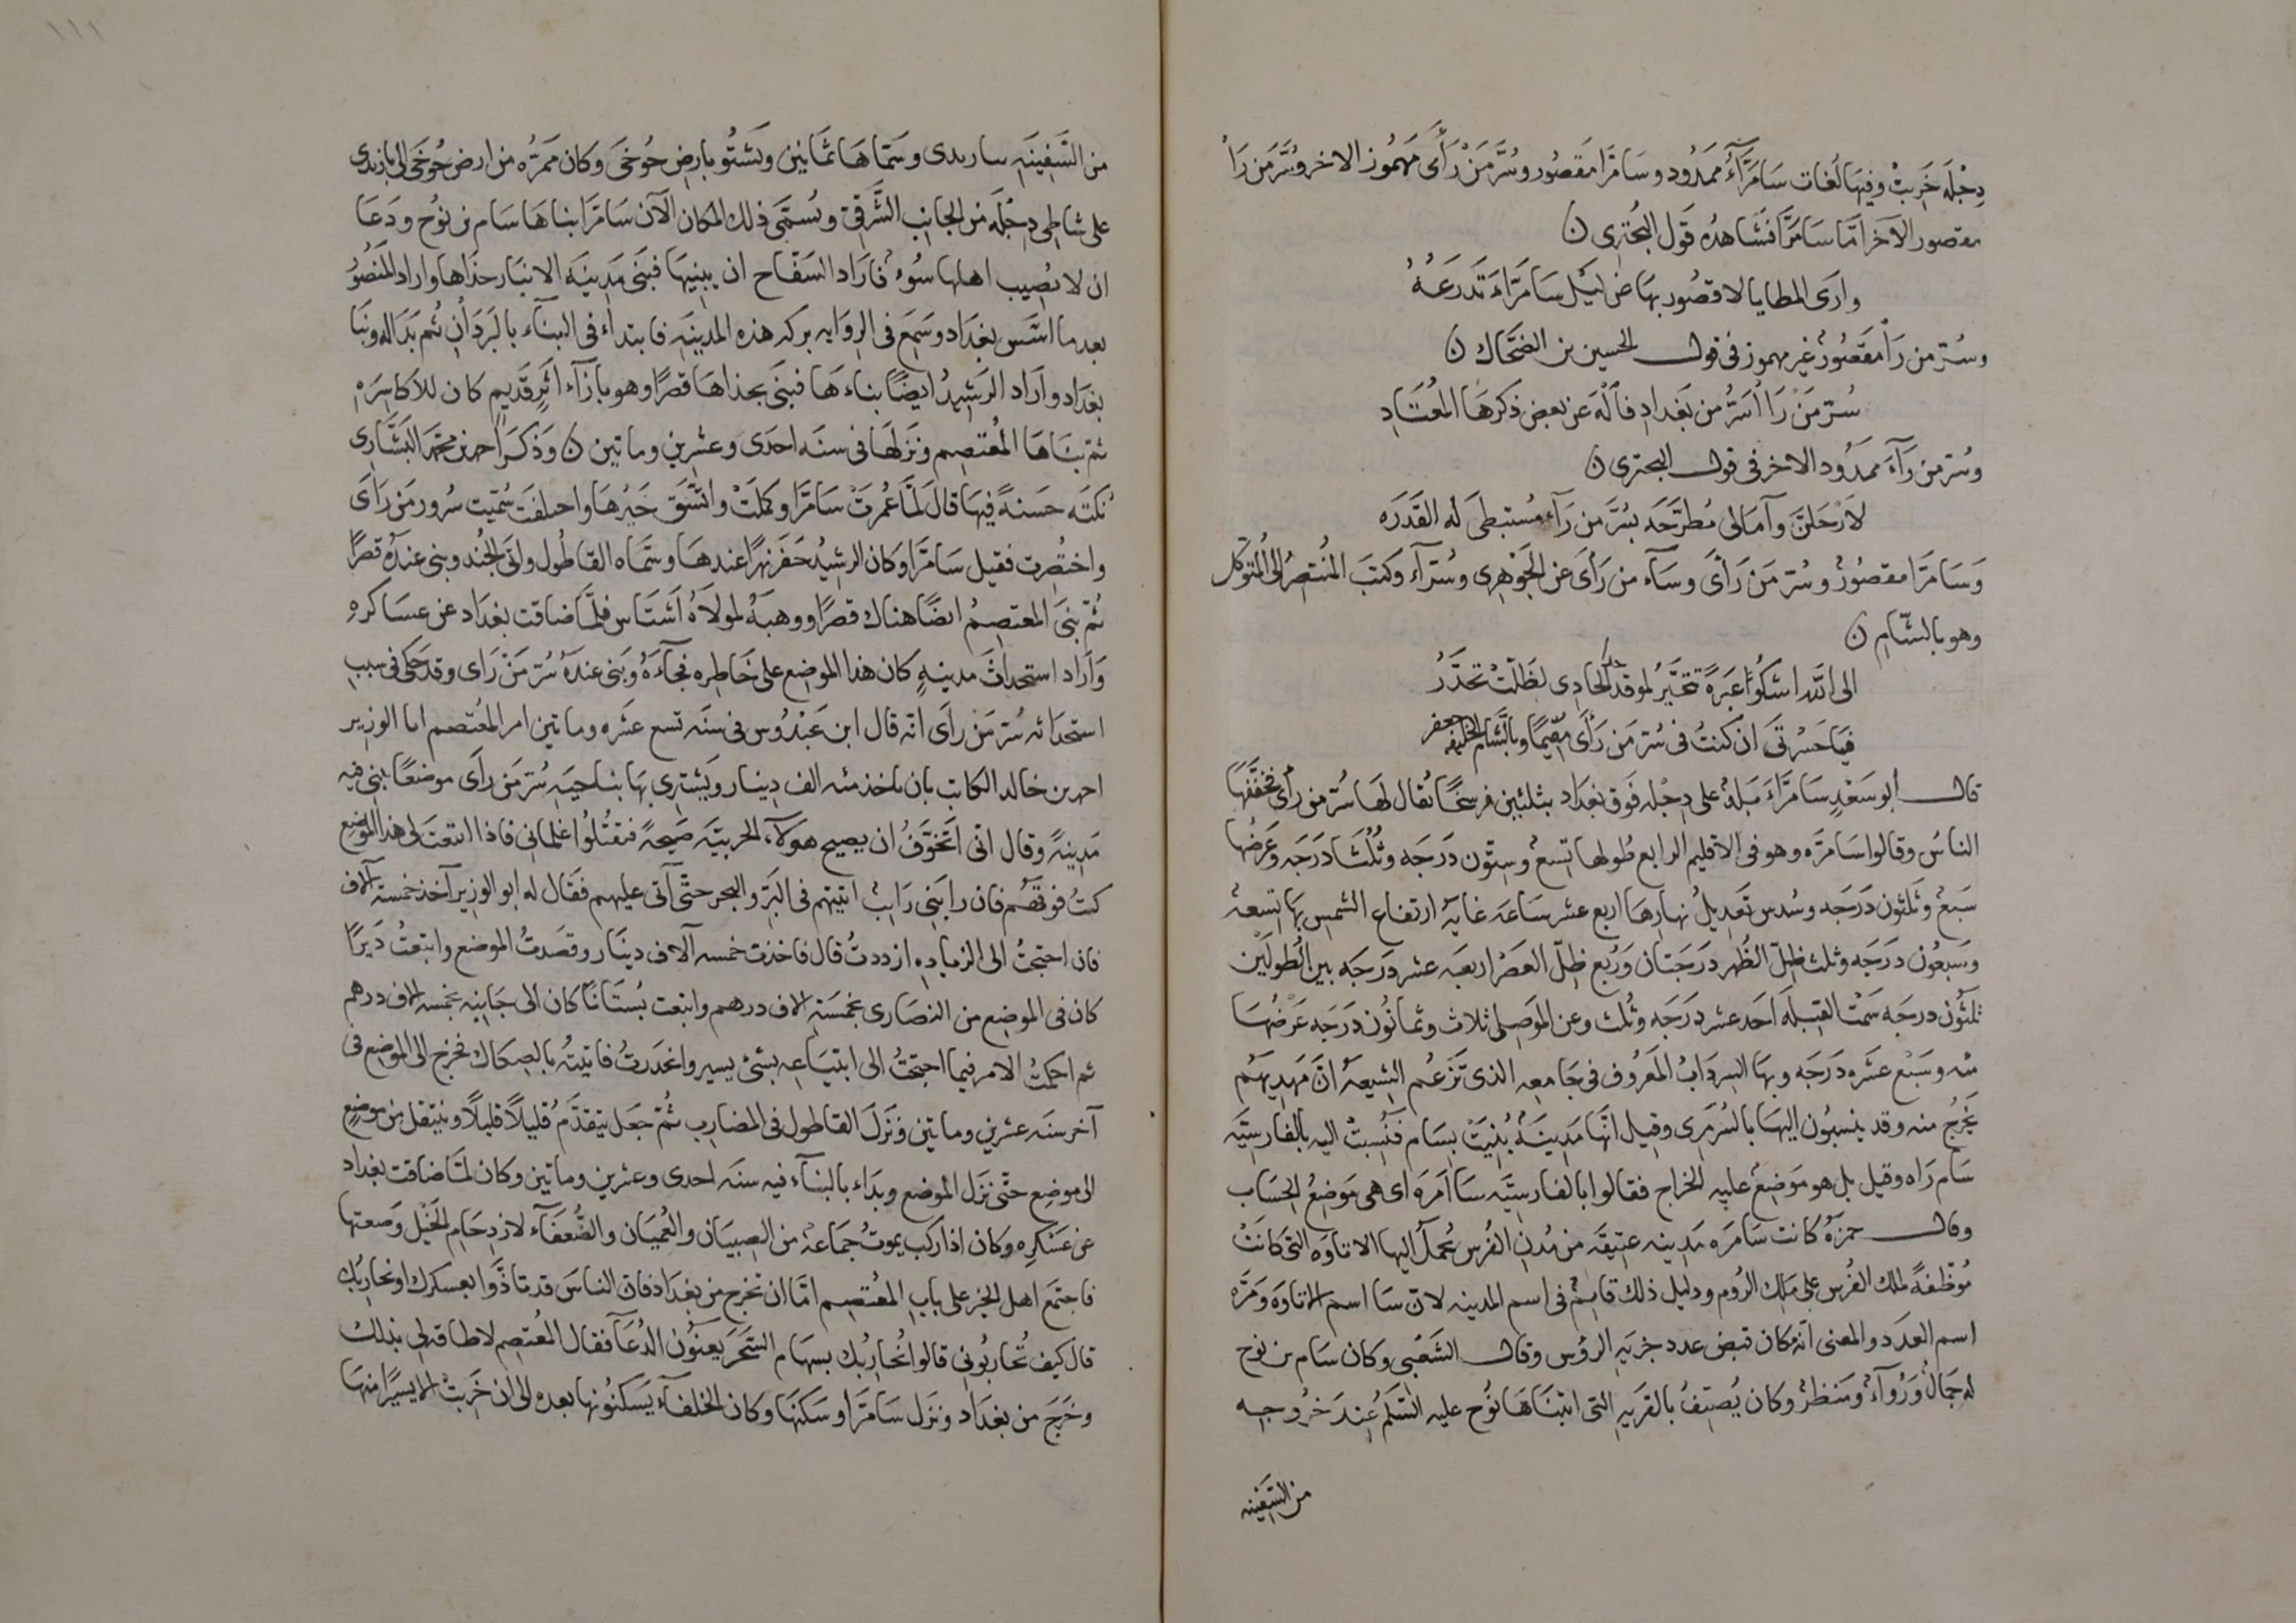 دِجْلَه خَرِبَتْ وفيها لُغات سَامَرَّآءُ ممدُود وسَامَرَّا مَقصُور وسُرَّ مَنْ رَأَى مَهمُوز الاخر وسُرَّ مَن رَا
مقصور الآخر امّا سَامَرَّا فشَاهدُه قَول البُحتُرى ن
وارَى المطايا لا قصُور بهَا عن لَيْل سَامَرَّاءَ تَدرَعُهُ
وسُرّ من رَأ مَقصُورٌ غير مهموز فى قول الحسين بن الضحّاك ن
سُرّ مَنْ رَا أسَرُّ من بَغداد فالْهُ عن بعض ذكرهَا المُعتَادِ
وسُرّ من رَآءَ ممدُود الاخر فى قول البحترى ن
لأَرْحَلَنَّ وآمَالى مُطرَّحَه بسُرَّ من رَآء مُستبطَى له القَدَره
وَسَامَرّا مقصُورٌ وسُرّ مَن رَأى وسَآء من رَأَى عن الجَوْهرى وسُرّآء وكتبَ المُنتصرُ الى المُتَوكل
وهو بالشّام ن
الى الله اشكُوا عَبَرةً تتحَيَّرُ لو قد حدَا الحَادِى لظَلّتْ تحَدَّرُ
فيَا حَسْرتَى ان كنتُ فى سُرّ مَن رَأَى مقيمًا وبالشَّام الخليفه جعفر
قال أبو سَعْدٍ سَامَرَّاءَ بَلدٌ على دِجْله فَوق بغدَاد بثلثين فرسخًا يُقال لهَا سُرّ من رأى فخفَّفهَا
الناسُ وقالوا سَامَرّه وهو فى الاقليم الرابع طُولها تِسعٌ وسِتُّون دَرَجَه وثُلُثا دَرَجَه وعَرضُها
سَبعٌ وثَلثون دَرَجَه وسُدس تَعديلُ نهارهَا اربع عشر سَاعَه غايَة ارتفاع الشمس بهَا تِسعةٌ
وسَبعُون دَرَجَه وثلث ظِلّ الظُهر دَرَجَتان ورُبع ظِلّ العَصْر اربَعَه عشر دَرَجَه بين الطُولَيْن
ثلثُون درجَه سَمْت القِبلَه اَحَد عشر دَرَجَه وثُلث وعن المَوصِلى ثلاث وثمانُون دَرَجَه عَرْضُهَا
مئه وسَبْع عَشَره دَرَجَه وبهَا السردَابُ المعَروف فى جَامعه الذى تَزعُم الشِيعةُ انّ مَهديهُم
يَخرُج منه وقد ينسبُون اليهَا بالسُرمَرى وقيل انّهَا مَدينَةٌ بُنيَتْ بسَام فنُسِبتْ اليه بالفارسيَّه
سَام رَاه وقيل بل هو مَوضعُ عليه الخراج فقالوا بالفارسيَّه سَا امَره اى هى مَوضعُ الحِسَاب
وقال حمزهُ كانت سَامَره مَدينه عتيقَه من مُدن الفُرس تُحملُ اليها الاتاوَه التى كانَتْ
مُوظّفةً لملك الفُرس على مَلك الرُوم ودليل ذلك قائمٌ فى اسم المدينه لانّ سَا اسم الاتاوَه ومَرّه
اسم العَدَد والمعنى انّه مكان قبض عدد جزيَه الرؤس وقال الشَّعْبى وكان سَام بن نوح
له جمَالٌ وَرُوآءٌ ومَنظرٌ وكان يُصَيّفُ بالقريَه التى ابتنَاهَا نُوح عليه السَّلم عندَ خُروجه
من السَّفينه
١١١
من السَّفينَه ببازبدى وسَمّاهَا ثمَانين ويَشتُو بارض حُوخَى وكان ممَرّه من ارض حُوخَى الى بازبدى
على شاطى دِجْلَه من الجانب الشَّرقىّ ويُسَمّى ذلك المكان الآن سَامَرَّا بناهَا سَام بن نوُح ودَعَا
ان لا يُصيب اهلها سُوءٌ فارَاد السَفّاح ان يبنيهَا فبَنى مَدينَه الانبَار حذاها واراد المَنصُورُ
بعد ما اسَّس بغدَاد وسَمعَ فى الروَايه بركه هذه المدينَه فابتدأ فى البنَآء بالبَردَانِ ثُم بدَا له وبَنا
بغدَاد وارَاد الرَشيدُ ايضًا بناءهَا فبنَى بحذاهَا قصرًا وهو بازَآء اثَرٍ قَديمٍ كان للاكاسِرَه
ثمّ بنَاهَا المُعتَصِم ونَزلهَا فى سنَه احدَى وعشرين وماتين ن وَذكَرَ احمد بن محمّد البَشَّارى
نُكتَه حَسنةً فيهَا قالَ لمَّا عُمرَتْ سَامَرّا وكمَلَتْ واتَّسَق خَيرُهَا واحتلفَت سُمّيت سُرور مَن رَاَى
واختُصرت فقيل سَامَرَّا وكان الرشيدُ حَفَر نهرًا عندهَا وسَمّاه القاطُول واتَى الجُند وبنى عندَهُ قصرًا
ثُمّ بَنَى المعتصِمُ ايضًا هناك قصرًا ووهبَهُ لمولاهُ اَشنَاس فلمَّا ضاقت بغدَاد عن عسَاكره
وارَاد استحداثَ مدينهٍ كان هذا الموضع على خَاطِره فجآءَهُ وبَنى عندَهُ سُرّ مَنْ رَاى وقد حَكى فى سبب
استحداثه سُرّ مَنْ رأَى انّه قال ابن عَبْدُوس فى سنَه تسع عشَره وماتين امر المُعتصم ابا الوزير
احمد بن خالد الكاتب بان ياخذ مئه الف دينار ويَشترِى بهَا بناحيَه سُرّ مَن رأَى موضعًا يبنى فيه
مَدينةً وقال انّى اتَخوَّفُ ان يصيح هولآء الحربيَّه صَيحةً فيقتُلُوا غلمانى فاذا ابتعتَ لى هذا الموَضع
كنتُ فوقَهُم فان رابَنى رَايبٌ اتيتهم فى البَرّ والبحر حتَّى آتى عليهم فقَال له ابو الوزير آخذ خمسة آلاف
فان احتجتُ الى الزياده ازددتُ قال فاخذت خمسه آلاف دينَار وقصَدتُ الموضع وابتعتُ دَيرًا
كان فى الموضِع من النصَارى بخمسَة الاف درهم وابتعت بُستَانًا كان الى جَانبه بخمسه الاف درهم
ثم احكمتُ الامر فيما احتجتُ الى ابتيَاعه بشئ يسير وانحدَرتُ فاتيتُه بالصِكاك فخرج الى الموضع فى
آخر سنَه عشرين وماتين ونَزلَ القاطول فى المضارب ثُمّ جَعَل يتقدَّمُ قليلًا قليلًا وينتقل من موضعٍ
الى موضِع حتَّى نَزل الموضع وبدَاء بالبنآء فيه سنَه احدى وعشرين وماتين وكان لمّا ضاقت بغداد
عن عسكره وكان اذا ركب يموتُ جمَاعةٌ من الصبيَان والعُميَان والضُّعفَآء لازدحَام الخَيْل وضَغطها
فاجتمَع اهل الخير على باب المُعتصِم امّا ان تخرج من بغدَاد فان الناسَ قد تاذَّوا بعسكرك او نحاربُك
قال كيف تُحَاربُونى قالوا نُحاربُك بسهَام السَّحَر يَعنوُن الدُعَآ فقال المُعتصِم لا طاقَه لى بذلك
وخرَجَ من بغدَاد ونزل سَامَرّا وسكنَهَا وكان الخلفآء يَسكنُونها بعده الى ان خَرِبتْ الا يسيرًا منها